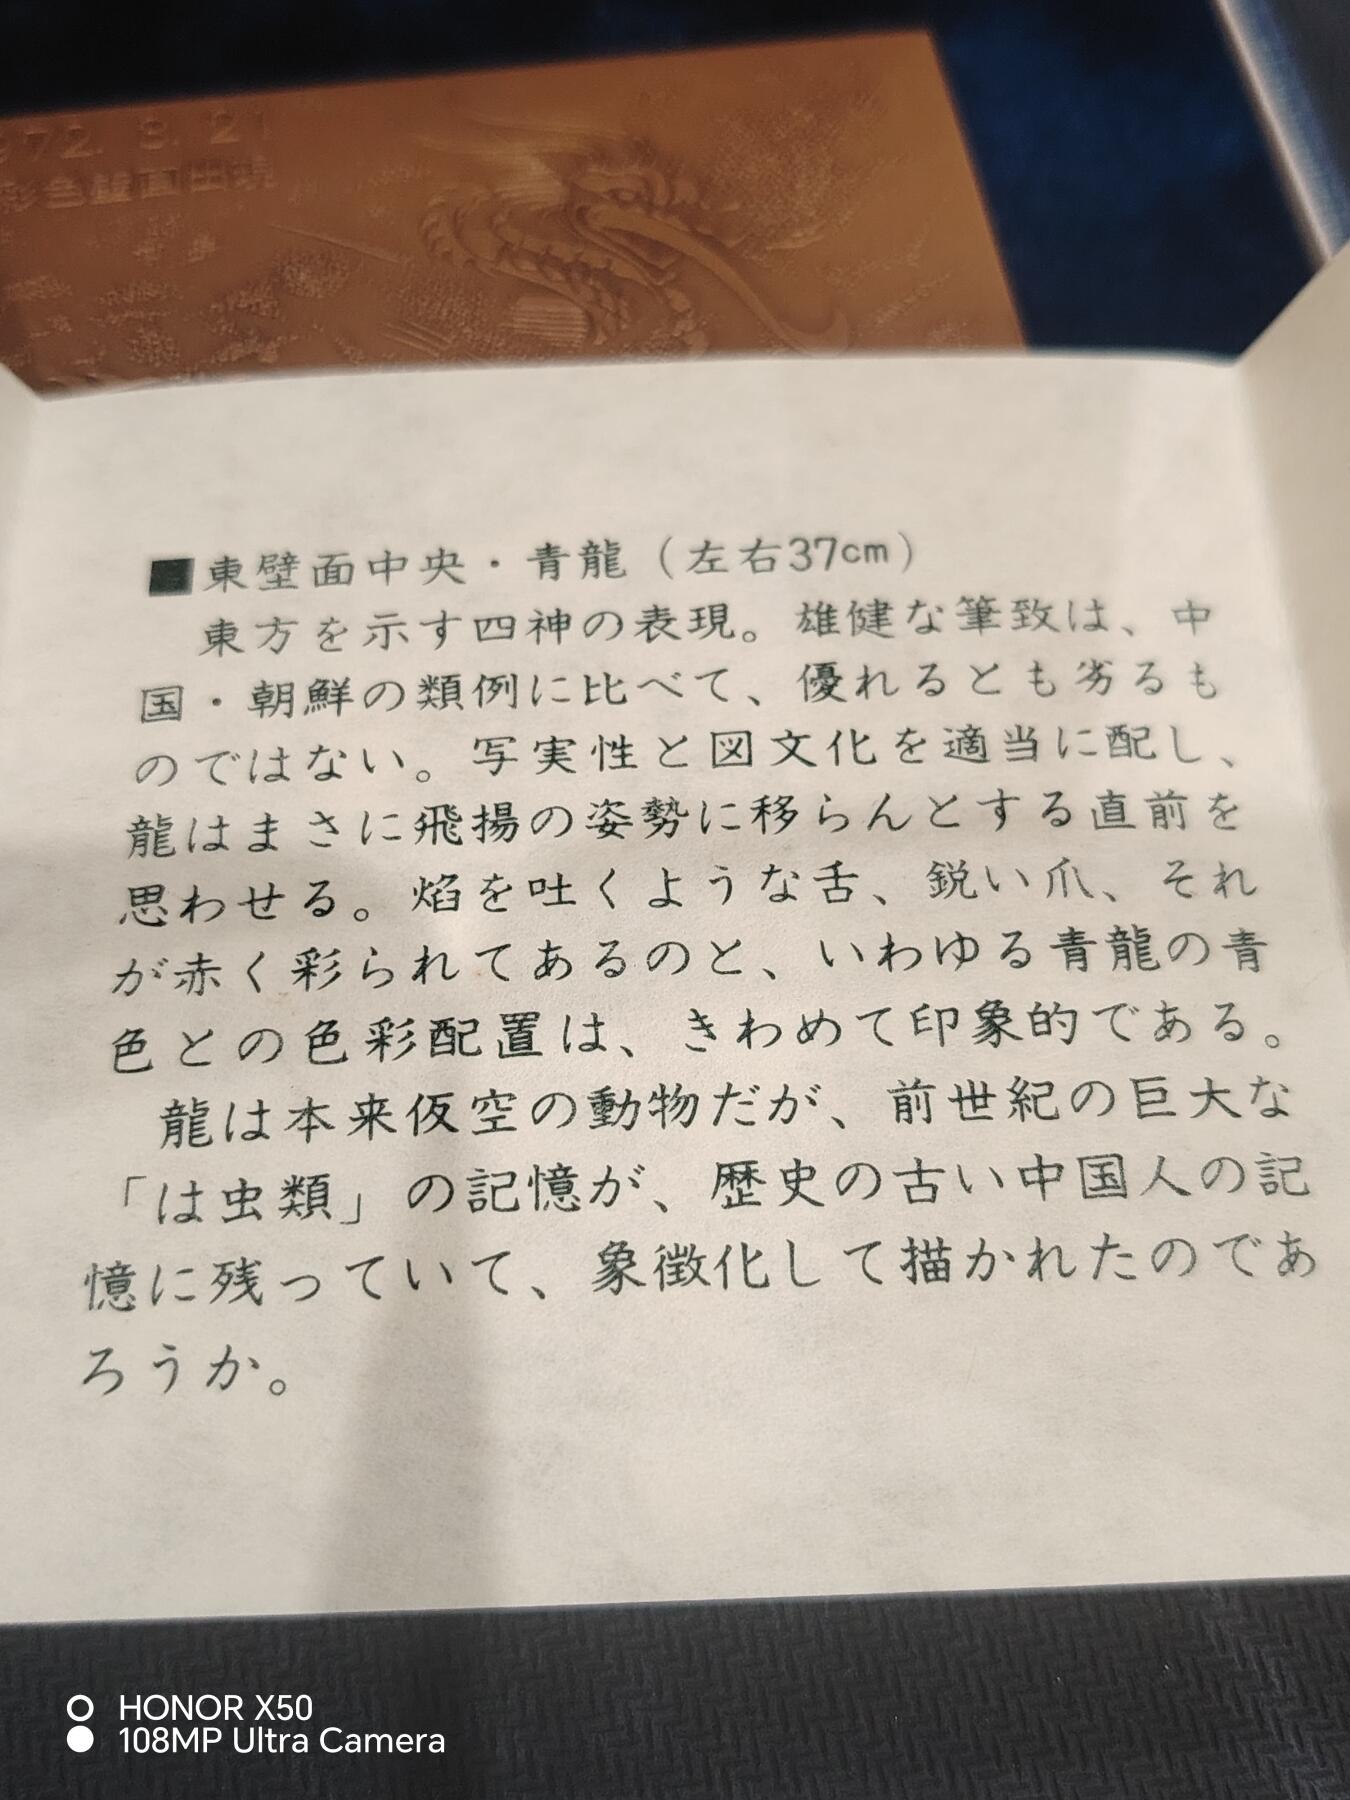 972. 3. 21
彩色壁画出現
■東壁面中央・青龍（左右37cm）
東方を示す四神の表現。雄健な筆致は、中
国・朝鮮の類例に比べて、優れるとも劣るも
のではない。写実性と図文化を適当に配し、
龍はまさに飛揚の姿勢に移らんとする直前を
思わせる。焰を吐くような舌、鋭い爪、それ
が赤く彩られてあるのと、いわゆる青龍の青
色との色彩配置は、きわめて印象的である。
龍は本来仮空の動物だが、前世紀の巨大な
「は虫類」の記憶が、歴史の古い中国人の記
憶に残っていて、象徴化して描かれたのであ
ろうか。
HONOR X50
108MP Ultra Camera